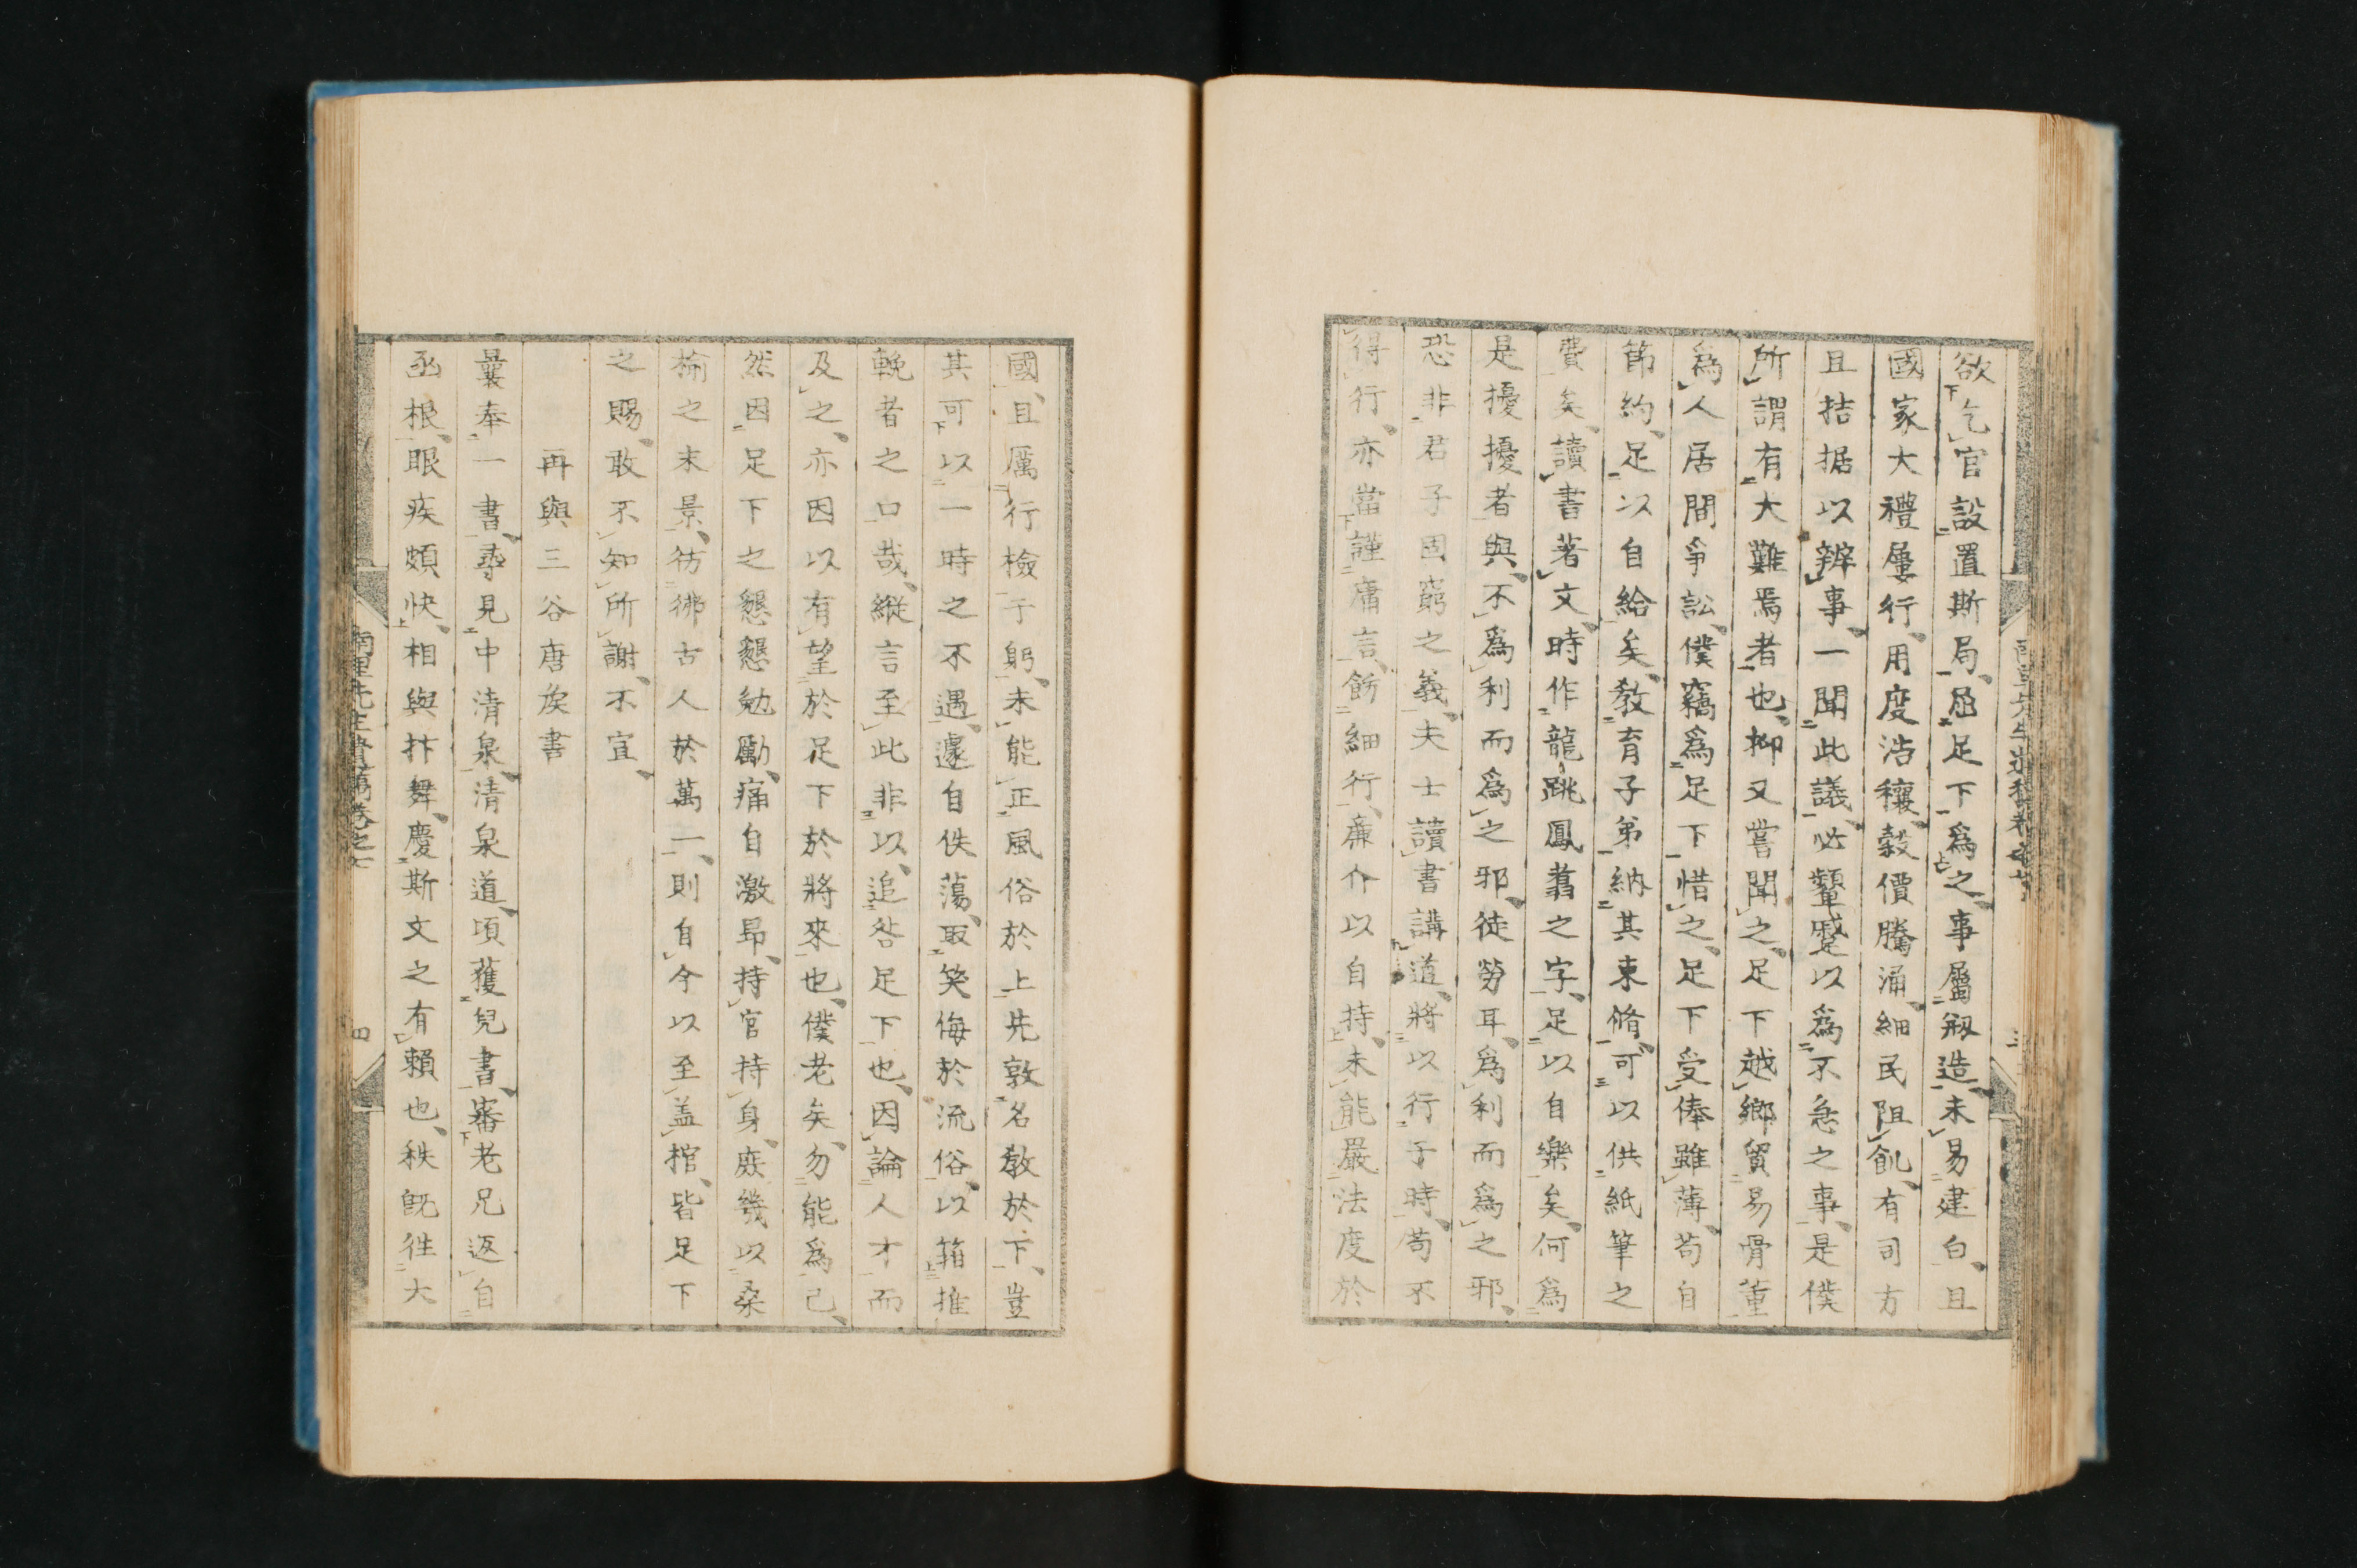 欲乞官設置斯局、屈足下爲之、事屬剏造、未易建白、且
國家大禮屢行、用度浩穰、穀價騰涌、細民阻飢、有司方
且拮据以辨事、一聞此議、必顰蹙以爲不急之事、是僕
所謂有大難焉者也、抑又嘗聞之、足下越鄉貿易骨董
爲人居間爭訟、僕竊爲足下惜之、足下受俸雖薄、苟自
節約、足以自給矣、教育子弟納其束脩、可以供紙筆之
費矣、讀書著文、時作龍跳鳳翥之字、足以自樂矣、何爲
是擾擾者與、不爲利而爲之邪、徒勞耳、爲利而爲之邪、
恐非君子固窮之義、夫士讀書講道、將以行于時、苟不
得行、亦當謹庸言、飭細行、廉介以自持、未能嚴法度於
國、且厲行檢于躬、未能正風俗於上先敦名教於下、豈
其可以一時之不遇、遽自佚蕩、取笑侮於流俗、以箝推
輓者之口哉、縱言至此、非以追咎足下也、因論人才而
及之、亦因以有望於足下於將來也、僕老矣、勿能爲已、
然因足下之懇懇勉勵、痛自激昂、持官持身、庶幾以桑
榆之末景、彷彿古人於萬一、則自今以至蓋棺、皆足下
之賜、敢不知所謝、不宣、
再與三谷唐矦書
曩奉一書、尋見中清泉、清泉道、頃獲兒書、審老兄返自
函根、眼疾頗快、相與抃舞、慶斯文之有賴也、秩既往大
四